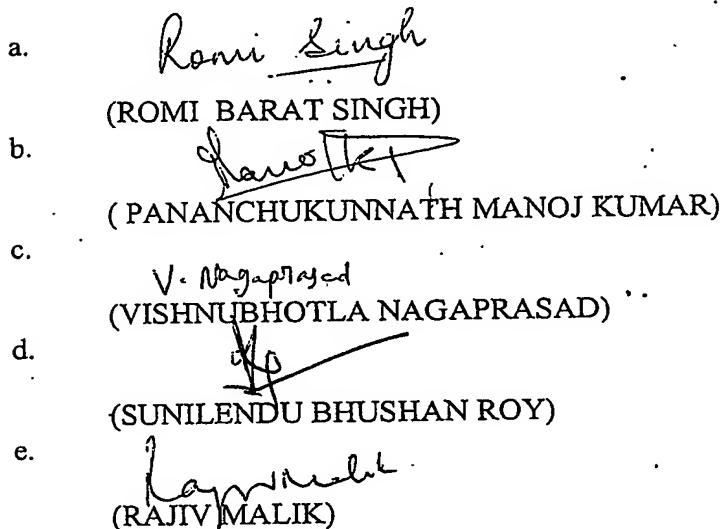 a.
Romi Singh
(ROMI BARAT SINGH)
b.
( PANANCHUKUNNATH MANOJ KUMAR)
c.
V. Nagaprasad
(VISHNUBHOTLA NAGAPRASAD)
d.
(SUNILENDU BHUSHAN ROY)
e.
(RAJIV MALIK)